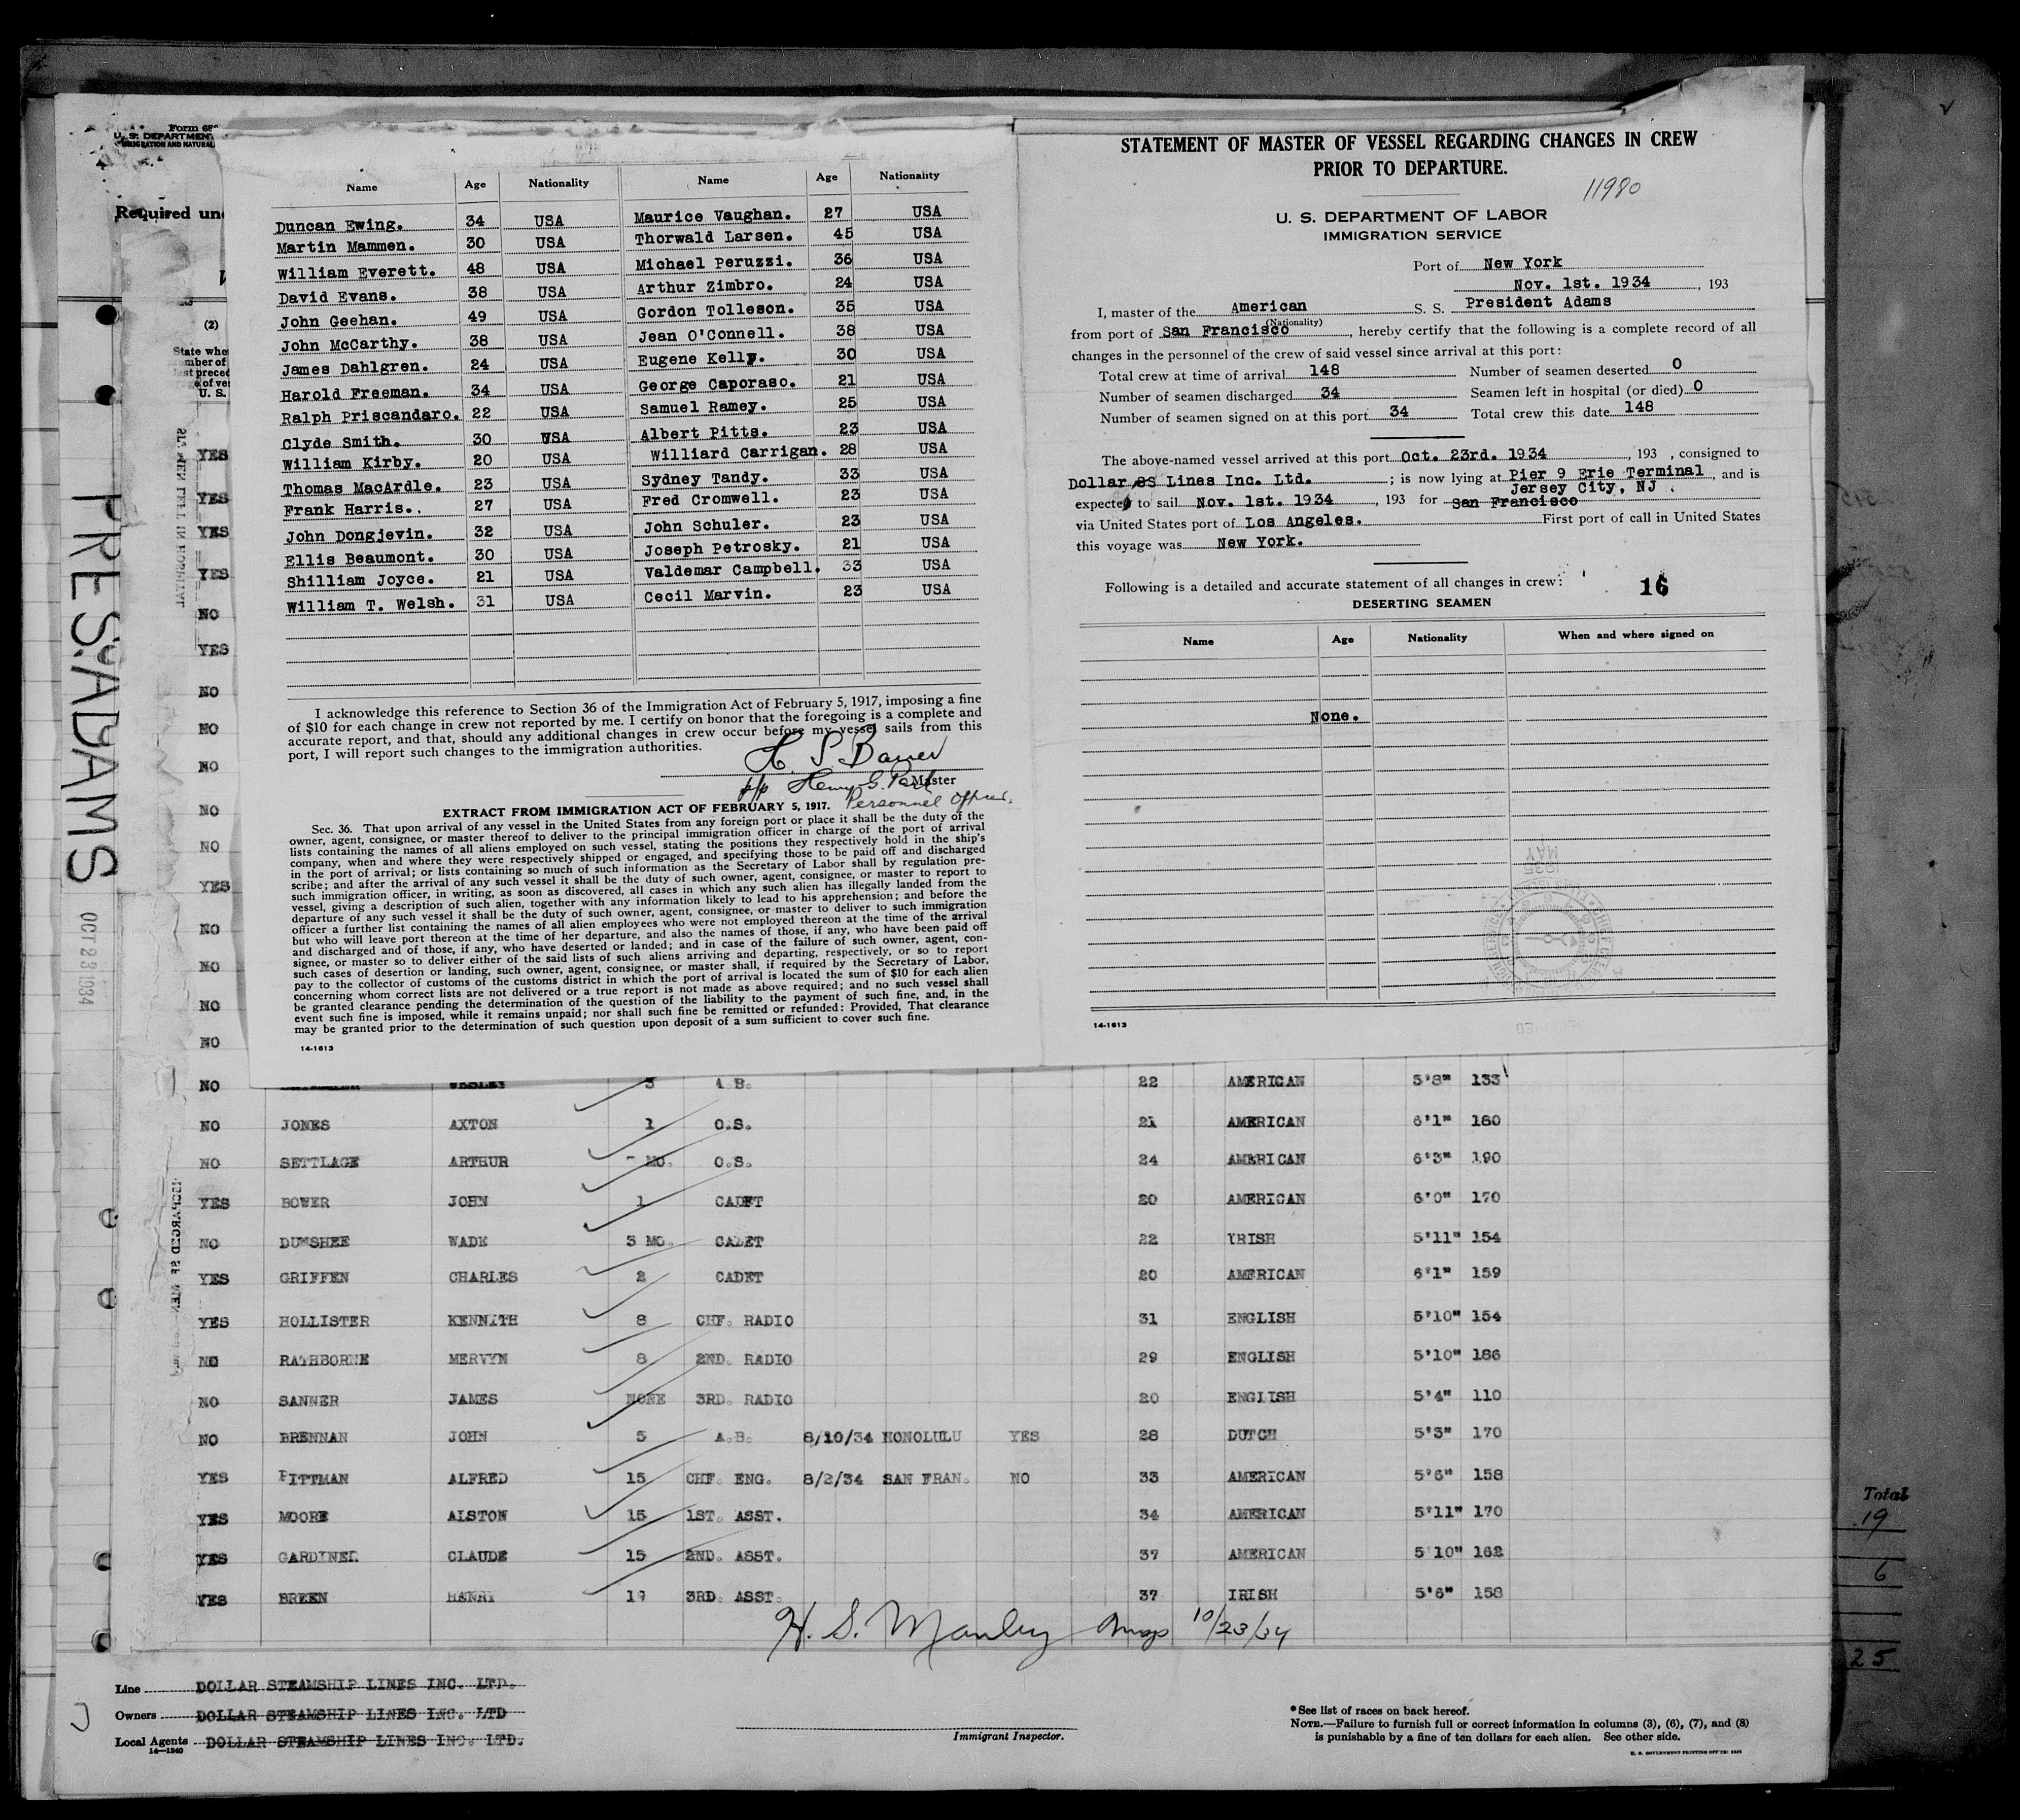 Form 68
U. S. DEPARTMENT
IMMIGRATION AND NATURAL
Required un
(2)
State whe
mber of
last preced
age of ves
U. S.
PRES. ADAMS
OCT 23 1934
YES
YES
YES
YES
NO
YES
NO
NO
NO
NO
NO
YES
NO
NO
NO
NO
Name Age Nationality Name Age Nationality
Duncan Ewing. 34 USA Maurice Vaughan. 27 USA
Martin Mammen. 30 USA Thorwald Larsen. 45 USA
William Everett. 48 USA Michael Peruzzi. 36 USA
David Evans. 38 USA Arthur Zimbro. 24 USA
John Geehan. 49 USA Gordon Tolleson. 35 USA
John McCarthy. 38 USA Jean O'Connell. 38 USA
James Dahlgren. 24 USA Eugene Kelly. 30 USA
Harold Freeman. 34 USA George Caporaso. 21 USA
Ralph Priscandaro. 22 USA Samuel Ramey. 25 USA
Clyde Smith. 30 USA Albert Pitts. 23 USA
William Kirby. 20 USA Williard Carrigan. 28 USA
Thomas MacArdle. 23 USA Sydney Tandy. 33 USA
Frank Harris. 27 USA Fred Cromwell. 23 USA
John Dongjevin. 32 USA John Schuler. 23 USA
Ellis Beaumont. 30 USA Joseph Petrosky. 21 USA
Shilliam Joyce. 21 USA Valdemar Campbell. 33 USA
William T. Welsh. 31 USA Cecil Marvin. 23 USA
I acknowledge this reference to Section 36 of the Immigration Act of February 5, 1917, imposing a fine
of $10 for each change in crew not reported by me. I certify on honor that the foregoing is a complete and
accurate report, and that, should any additional changes in crew occur before my vessel sails from this
port, I will report such changes to the immigration authorities.
H. S. Bauer
p/p Henry G. Master
Personnel Officer.
EXTRACT FROM IMMIGRATION ACT OF FEBRUARY 5, 1917.
Sec. 36. That upon arrival of any vessel in the United States from any foreign port or place it shall be the duty of the
owner, agent, consignee, or master thereof to deliver to the principal immigration officer in charge of the port of arrival
lists containing the names of all aliens employed on such vessel, stating the positions they respectively hold in the ship's
company, when and where they were respectively shipped or engaged, and specifying those to be paid off and discharged
in the port of arrival; or lists containing so much of such information as the Secretary of Labor shall by regulation pre-
scribe; and after the arrival of any such vessel it shall be the duty of such owner, agent, consignee, or master to report to
such immigration officer, in writing, as soon as discovered, all cases in which any such alien has illegally landed from the
vessel, giving a description of such alien, together with any information likely to lead to his apprehension; and before the
departure of any such vessel it shall be the duty of such owner, agent, consignee, or master to deliver to such immigration
officer a further list containing the names of all alien employees who were not employed thereon at the time of the arrival
but who will leave port thereon at the time of her departure, and also the names of those, if any, who have been paid off
and discharged and of those, if any, who have deserted or landed; and in case of the failure of such owner, agent, con-
signee, or master so to deliver either of the said lists of such aliens arriving and departing, respectively, or so to report
such cases of desertion or landing, such owner, agent, consignee, or master shall, if required by the Secretary of Labor,
pay to the collector of customs of the customs district in which the port of arrival is located the sum of $10 for each alien
concerning whom correct lists are not delivered or a true report is not made as above required; and no such vessel shall
be granted clearance pending the determination of the question of the liability to the payment of such fine, and, in the
event such fine is imposed, while it remains unpaid; nor shall such fine be remitted or refunded: Provided, That clearance
may be granted prior to the determination of such question upon deposit of a sum sufficient to cover such fine.
14-1613
STATEMENT OF MASTER OF VESSEL REGARDING CHANGES IN CREW
PRIOR TO DEPARTURE.
11980
U. S. DEPARTMENT OF LABOR
IMMIGRATION SERVICE
Port of New York
Nov. 1st. 1934, 193
I, master of the American S. S. President Adams
(Nationality)
from port of San Francisco, hereby certify that the following is a complete record of all
changes in the personnel of the crew of said vessel since arrival at this port:
Total crew at time of arrival 148 Number of seamen deserted 0
Number of seamen discharged 34 Seamen left in hospital (or died) 0
Number of seamen signed on at this port 34 Total crew this date 148
The above-named vessel arrived at this port Oct. 23rd. 1934, 193 , consigned to
Dollar SS Lines Inc. Ltd. ; is now lying at Pier 9 Erie Terminal, and is
Jersey City, NJ.
expected to sail Nov. 1st. 1934, 193 for San Francisco
via United States port of Los Angeles. First port of call in United States
this voyage was New York.
Following is a detailed and accurate statement of all changes in crew:
16
DESERTING SEAMEN
Name Age Nationality When and where signed on
None.
MAY
1935
14-1613
NO 3 A.B. 22 AMERICAN 5'8" 133
NO JONES AXTON 1 O.S. 21 AMERICAN 6'1" 180
NO SETTLAGE ARTHUR MO. O.S. 24 AMERICAN 6'3" 190
YES BOWER JOHN 1 CADET 20 AMERICAN 6'0" 170
NO DUMSHEE WADE 3 MO. CADET 22 IRISH 5'11" 154
YES GRIFFEN CHARLES 2 CADET 20 AMERICAN 6'1" 159
YES HOLLISTER KENNITH 8 CHF. RADIO 31 ENGLISH 5'10" 154
NO RATHBORNE MERVYN 8 2ND. RADIO 29 ENGLISH 5'10" 186
NO SANNER JAMES NONE 3RD. RADIO 20 ENGLISH 5'4" 110
NO BRENNAN JOHN 5 A.B. 8/10/34 HONOLULU YES 28 DUTCH 5'3" 170
YES PITTMAN ALFRED 15 CHF. ENG. 8/2/34 SAN FRAN. NO 33 AMERICAN 5'6" 158
YES MOORE ALSTON 15 1ST. ASST. 34 AMERICAN 5'11" 170
YES GARDINEL CLAUDE 15 2ND. ASST. 37 AMERICAN 5'10" 162
YES BREEN HENRY 3RD. ASST. 37 IRISH 5'6" 158
H. S. Manley 10/23/34
Total
19
6
25
Line DOLLAR STEAMSHIP LINES INC. LTD.
Owners DOLLAR STEAMSHIP LINES INC. LTD
Local Agents DOLLAR STEAMSHIP LINES INC. LTD.
14-1240
Immigrant Inspector.
*See list of races on back hereof.
NOTE.—Failure to furnish full or correct information in columns (3), (6), (7), and (8)
is punishable by a fine of ten dollars for each alien. See other side.
U. S. GOVERNMENT PRINTING OFFICE: